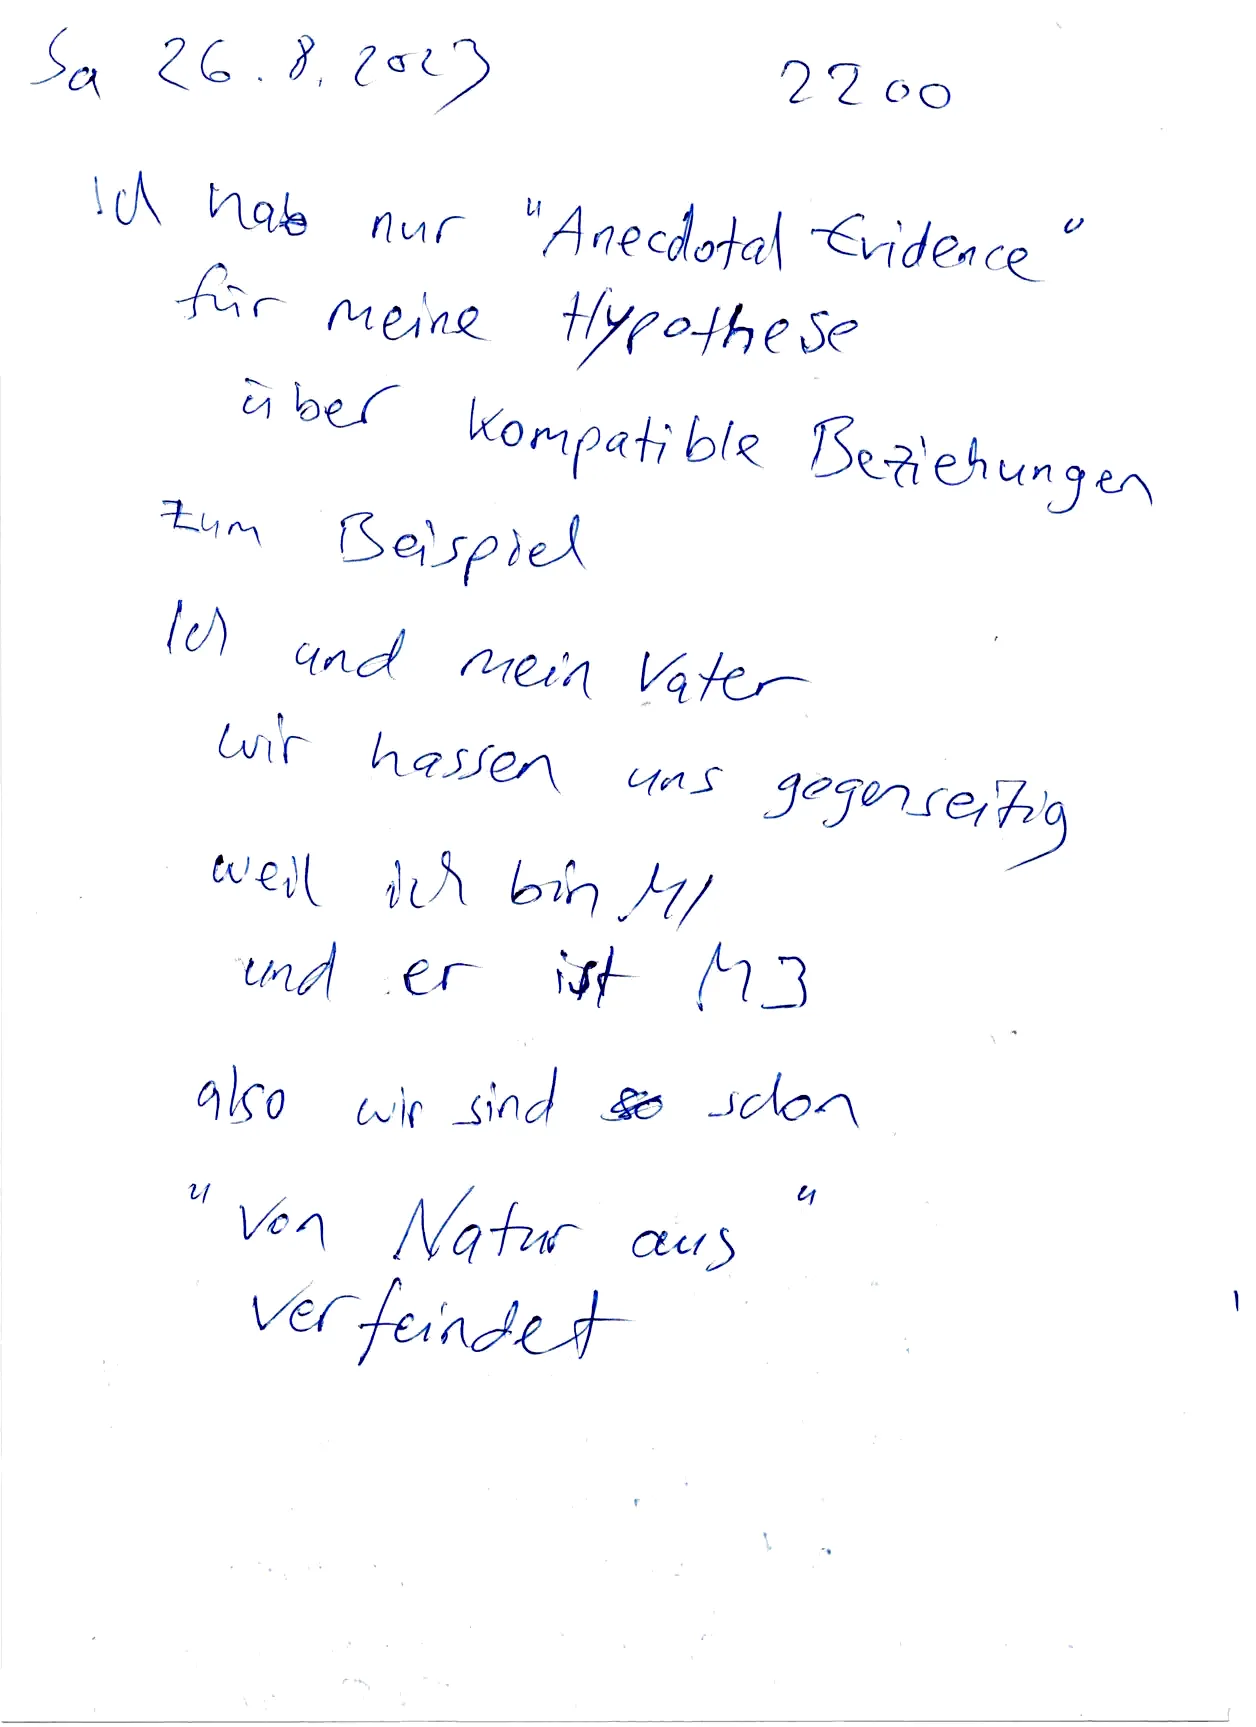 Sa 26.8.2023 2200
Ich hab nur "Anecdotal Evidence"
für meine Hypothese
über kompatible Beziehungen
zum Beispiel
Ich und mein Vater
wir hassen uns gegenseitig
weil ich bin M1
und er ist M3
also wir sind schon
"von Natur aus"
verfeindet